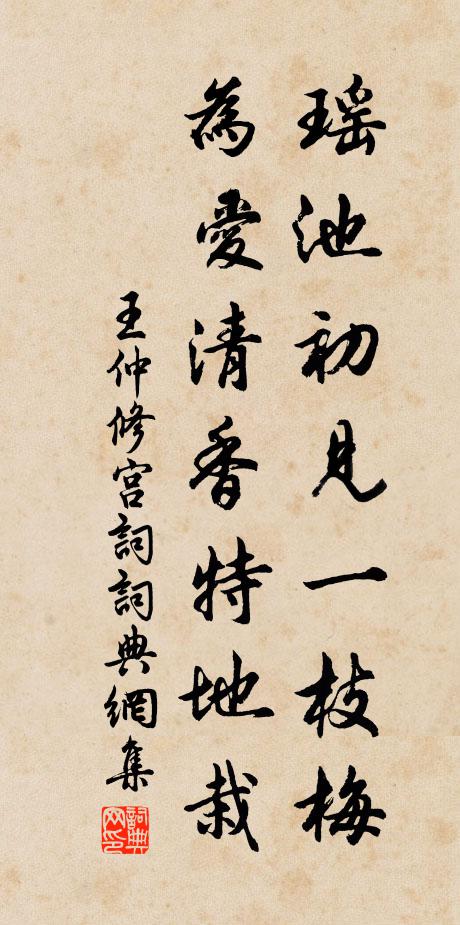 瑶池初見一枝梅
為愛清香特地栽
王仲修宮詞詞典網集
詞典網印